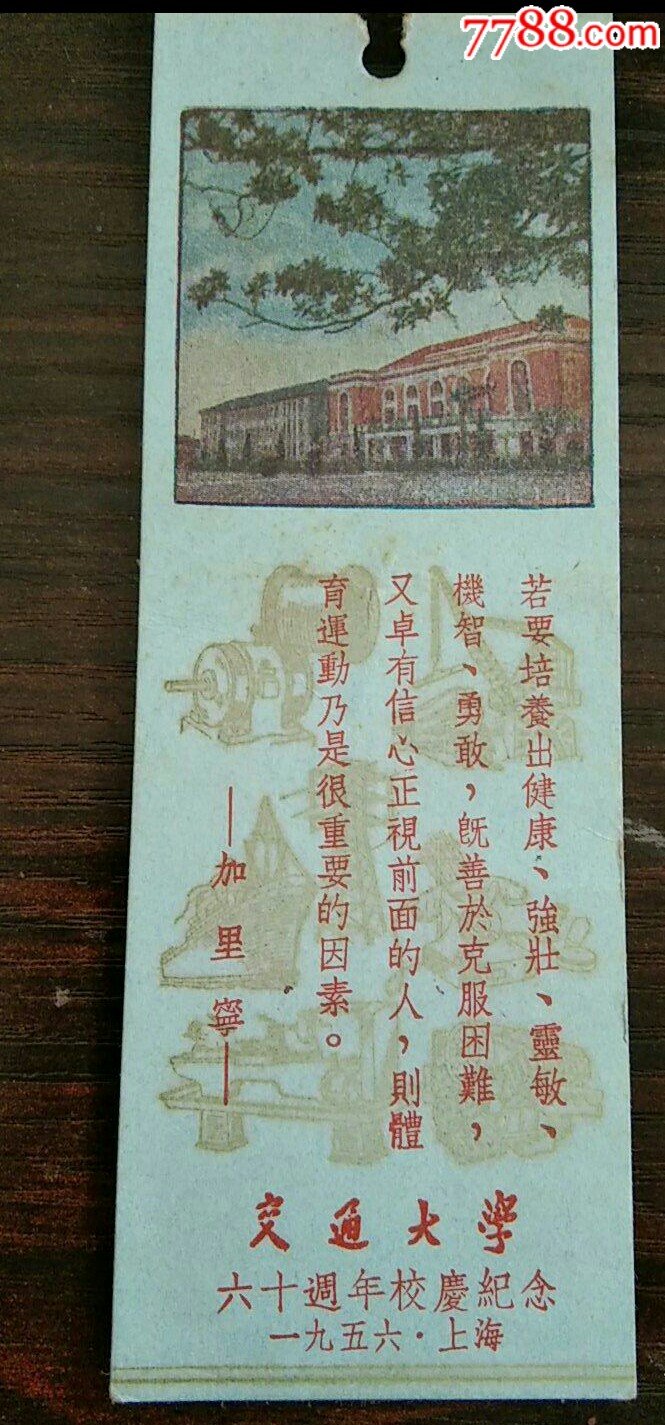 7788.com
若要培養出健康、強壯、靈敏、
機智、勇敢，既善於克服困難，
又卓有信心正視前面的人，則體
育運動乃是很重要的因素。
—加里寧—
交通大學
六十週年校慶紀念
一九五六·上海